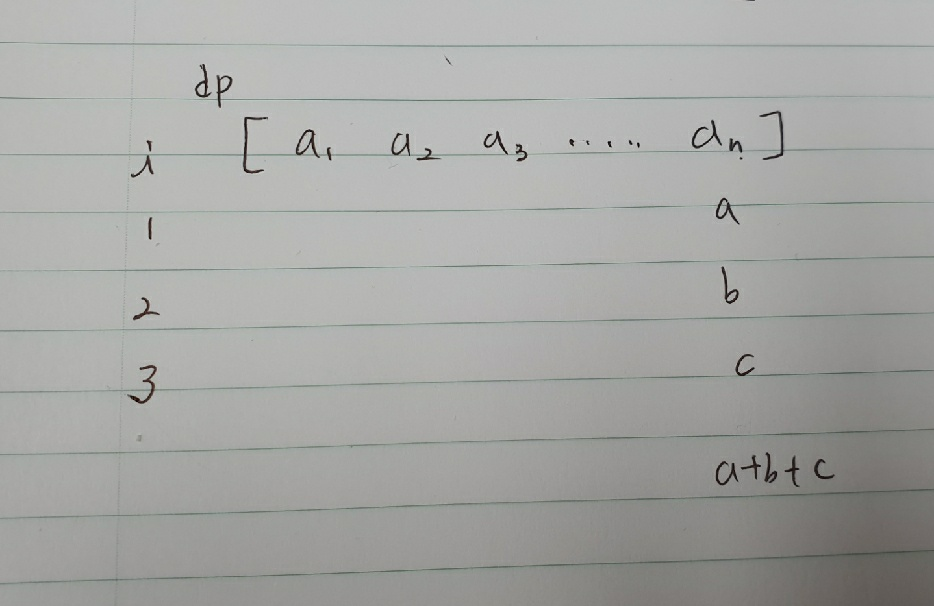 dp
i [ a₁ a₂ a₃ ..... aₙ ]
1 a
2 b
3 c
a+b+c